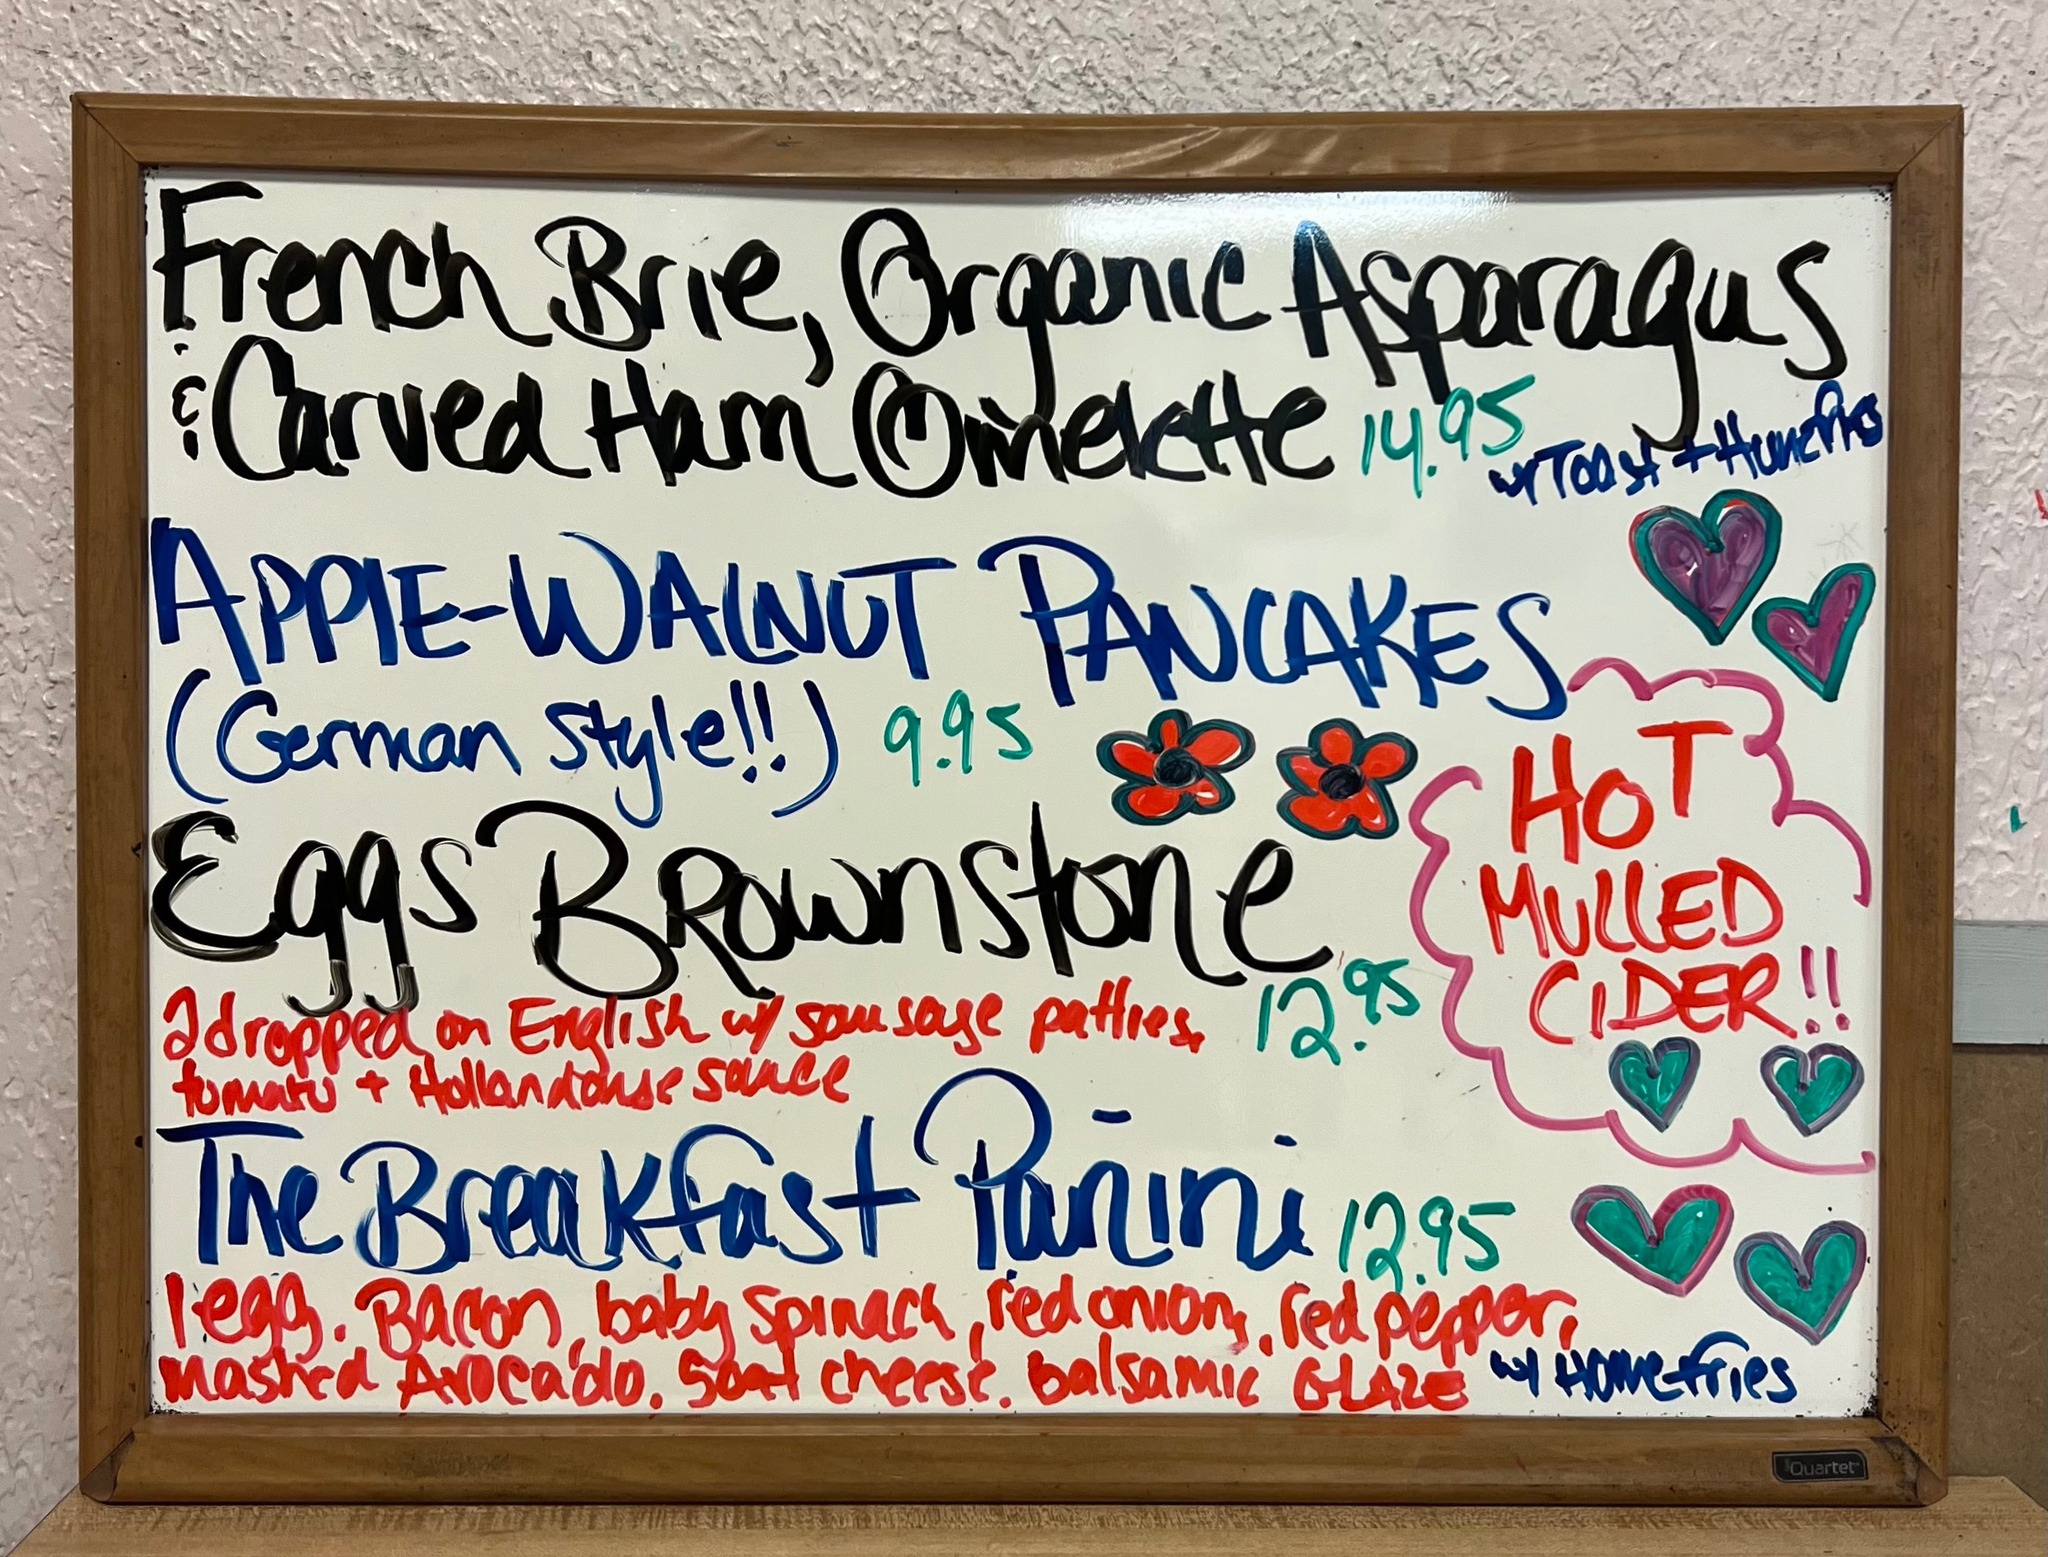 French Brie, Organic Asparagus
& Carved Ham Omelette 14.95
w/ Toast + Homefries
APPLE-WALNUT PANCAKES
(German Style!!) 9.95
Eggs Brownstone
2 dropped on English w/ sausage patties, 12.95
tomato + Hollandaise sauce
HOT
MULLED
CIDER!!
The Breakfast Panini 12.95
1 egg. Bacon, baby spinach, red onion, red pepper,
mashed Avocado. Goat cheese. Balsamic GLAZE w/ Homefries
Quartet